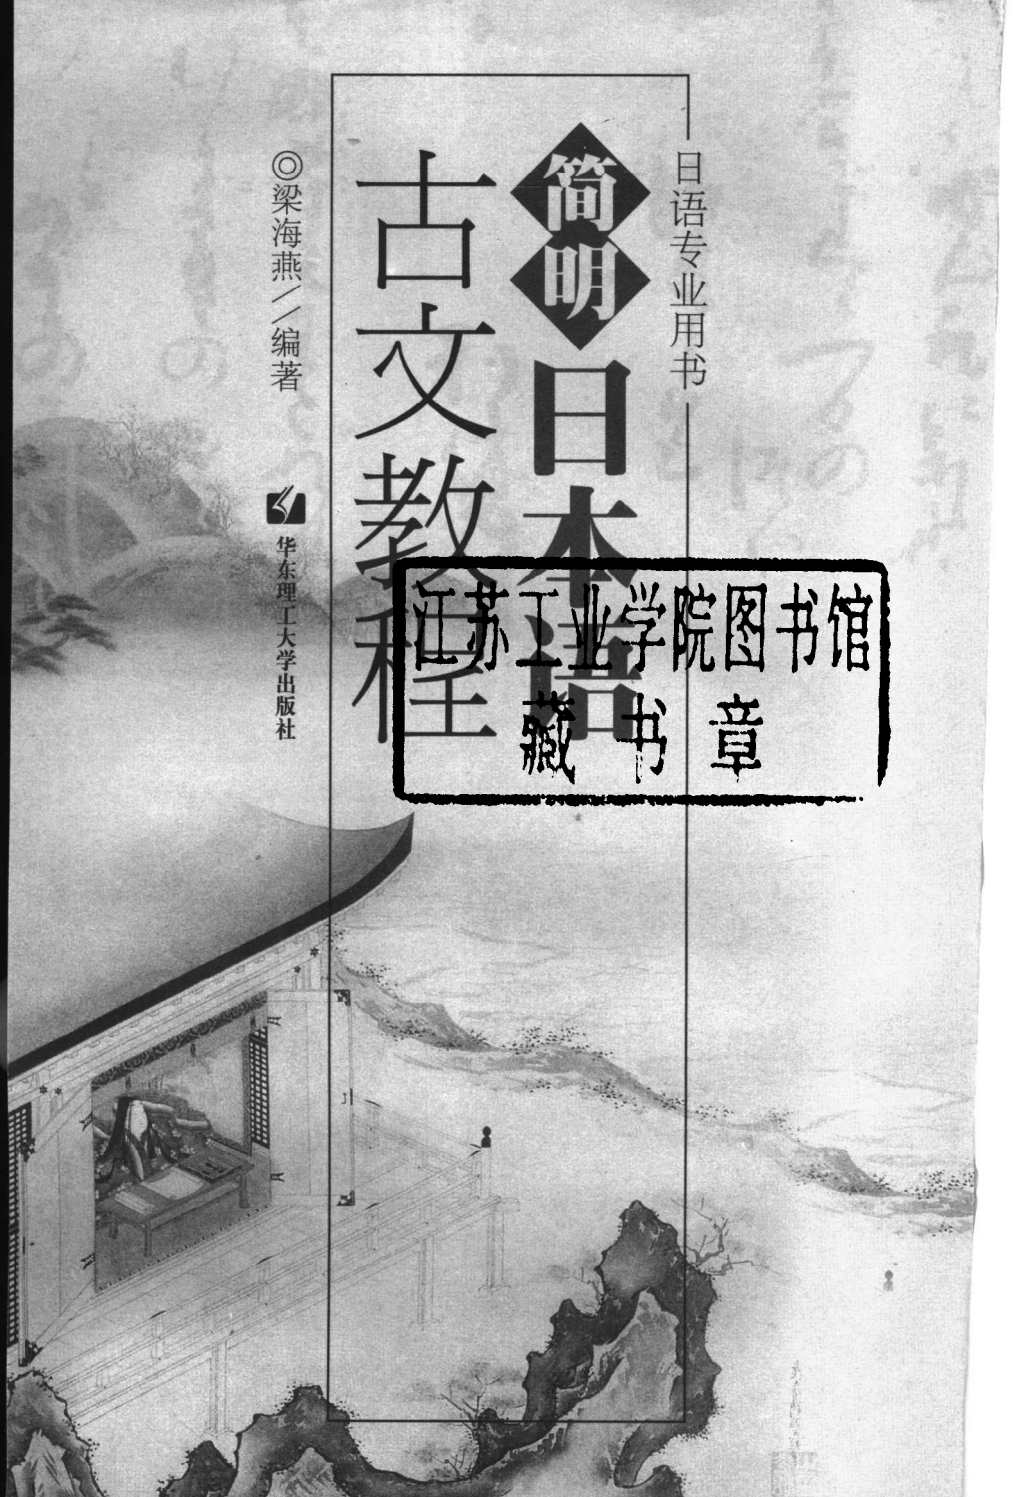 日语专业用书
简明日本语
古文教程
◎梁海燕//编著
华东理工大学出版社
江苏工业学院图书馆
藏书章